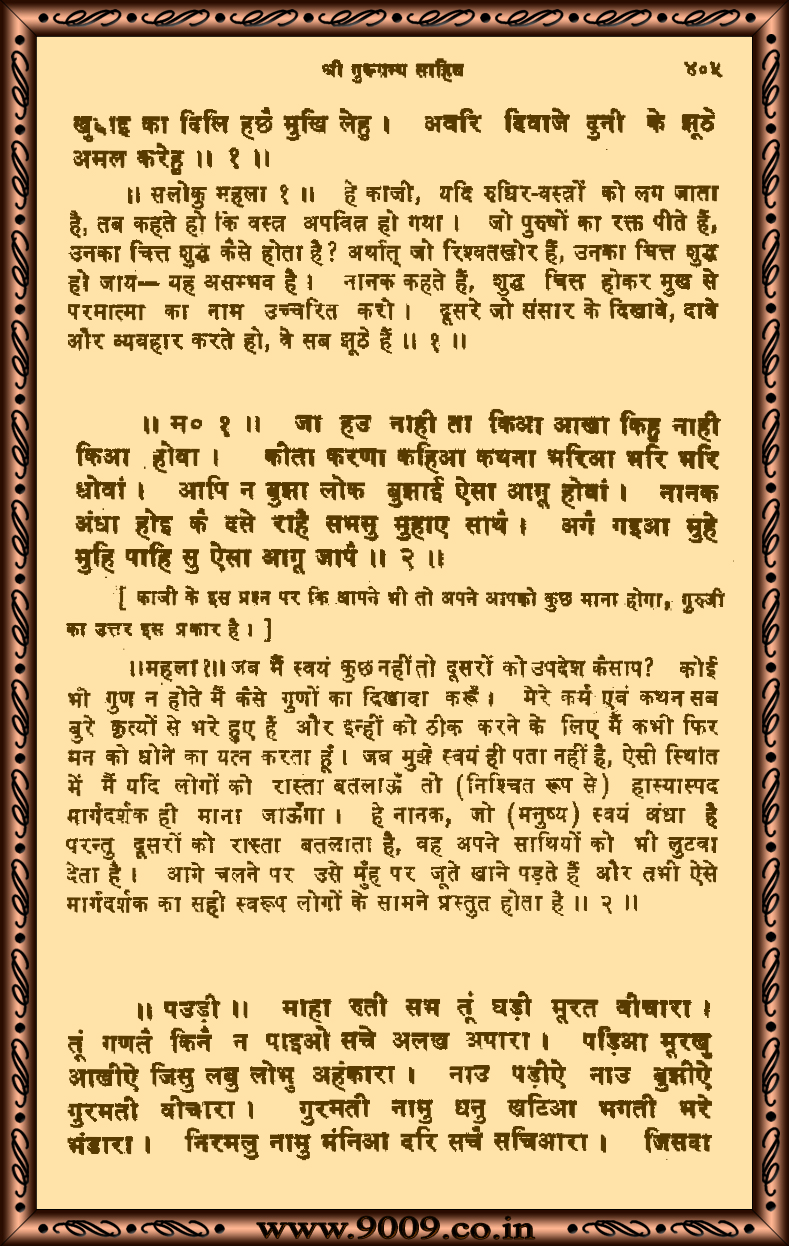 श्री गुरूग्रन्थ साहिब ४०५
खुदाइ का दिलि हछै मुखि लेहु । अवरि दिवाजे दुनी के झूठे
अमल करेहु ॥ १ ॥
॥ सलोकु महला १ ॥ हे काजी, यदि रुधिर-वस्त्रों को लग जाता
है, तब कहते हो कि वस्त्र अपवित्र हो गया । जो पुरुषों का रक्त पीते हैं,
उनका चित्त शुद्ध कैसे होता है? अर्थात् जो रिश्वतखोर हैं, उनका चित्त शुद्ध
हो जाय— यह असम्भव है । नानक कहते हैं, शुद्ध चित्त होकर मुख से
परमात्मा का नाम उच्चरित करो । दूसरे जो संसार के दिखावे, दावे
और व्यवहार करते हो, वे सब झूठे हैं ॥ १ ॥
॥ म० १ ॥ जा हउ नाही ता किआ आखा किहु नाही
किआ होवा । कीता करणा कहिआ कथना भरिआ भरि भरि
धोवां । आपि न बुझा लोक बुझाई ऐसा आगू होवां । नानक
अंधा होइ कै दसे राहै सभसु मुहाए साथै । अगै गइआ मुहे
मुहि पाहि सु ऐसा आगू जापै ॥ २ ॥
[ काजी के इस प्रश्न पर कि आपने भी तो अपने आपको कुछ माना होगा, गुरुजी
का उत्तर इस प्रकार है । ]
॥महला१॥ जब मैं स्वयं कुछ नहीं तो दूसरों को उपदेश कैसा प? कोई
भी गुण न होते मैं कैसे गुणों का दिखावा करूँ । मेरे कर्म एवं कथन सब
बुरे कृत्यों से भरे हुए हैं और इन्हीं को ठीक करने के लिए मैं कभी फिर
मन को धोने का यत्न करता हूँ । जब मुझे स्वयं ही पता नहीं है, ऐसी स्थिति
में मैं यदि लोगों को रास्ता बतलाऊँ तो (निश्चित रूप से) हास्यास्पद
मार्गदर्शक ही माना जाऊँगा । हे नानक, जो (मनुष्य) स्वयं अंधा है
परन्तु दूसरों को रास्ता बतलाता है, वह अपने साथियों को भी लुटवा
देता है । आगे चलने पर उसे मुँह पर जूते खाने पड़ते हैं और तभी ऐसे
मार्गदर्शक का सही स्वरूप लोगों के सामने प्रस्तुत होता है ॥ २ ॥
॥ पउड़ी ॥ माहा रुती सभ तूं घड़ी मूरत वीचारा ।
तूं गणतै किनै न पाइओ सचे अलख अपारा । पड़िआ मूरखु
आखीऐ जिसु लबु लोभु अहंकारा । नाउ पड़ीऐ नाउ बुझीऐ
गुरमती वीचारा । गुरमती नामु धनु खटिआ भगती भरे
भंडारा । निरमलु नामु मंनिआ दरि सचै सचिआरा । जिसदा
www.9009.co.in